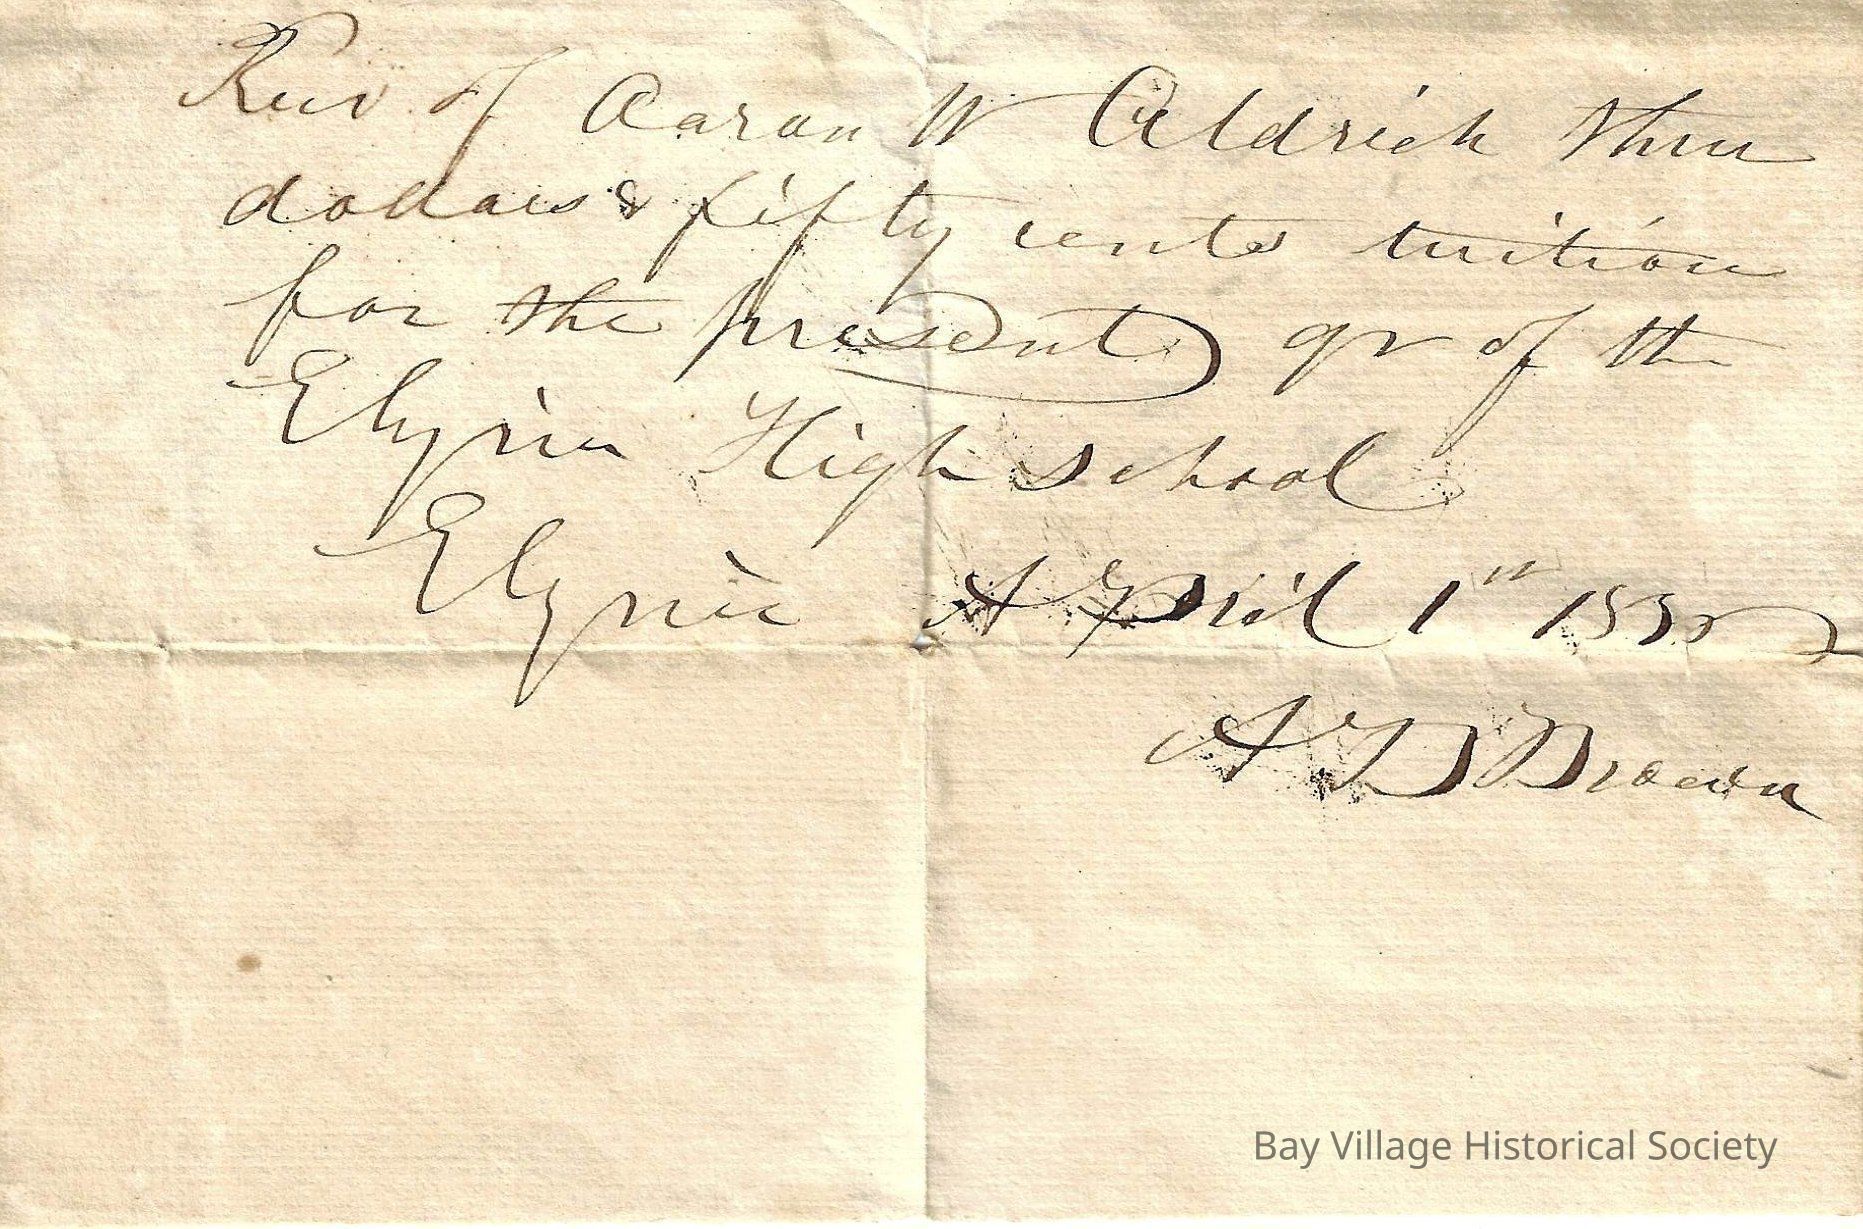 Recv of Aaron W Aldrich three
dollars & fifty cents tuition
for the present qr of the
Elyria High School
Elyria April 1st
A D Brown
Bay Village Historical Society